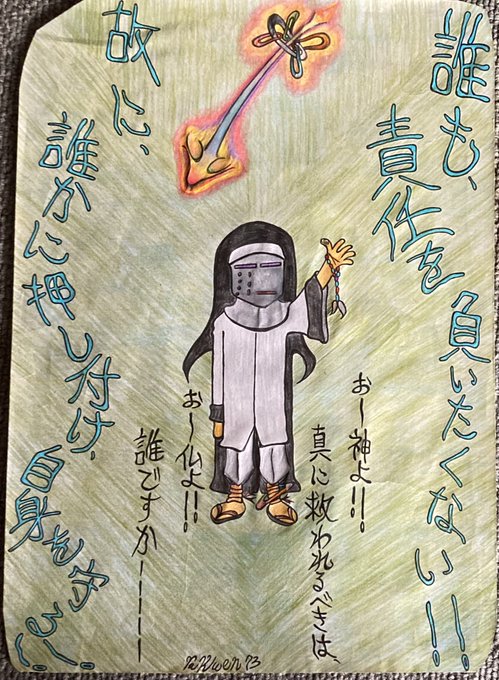 誰も、
責任を
負いたくない!!
故に、
誰かに押し付け、
自身を守る!!
お〜神よ!!
真に救われるべきは、
お〜仏よ!!
誰ですかーーーー